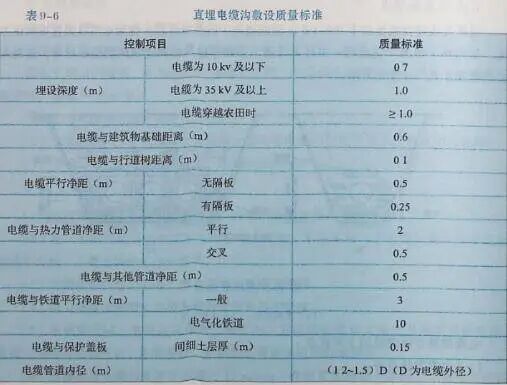 表9-6 直埋电缆沟敷设质量标准
控制项目 质量标准
电缆为10 kv及以下 0 7
埋设深度（m） 电缆为35 kV及以上 1.0
电缆穿越农田时 ≥1.0
电缆与建筑物基础距离（m） 0.6
电缆与行道树距离（m） 0 1
电缆平行净距（m） 无隔板 0.5
有隔板 0.25
电缆与热力管道净距（m） 平行 2
交叉 0.5
电缆与其他管道净距（m） 0.5
电缆与铁道平行净距（m） 一般 3
电气化铁道 10
电缆与保护盖板 间细土层厚（m） 0.15
电缆管道内径（m） （1 2~1.5）D（D为电缆外径）